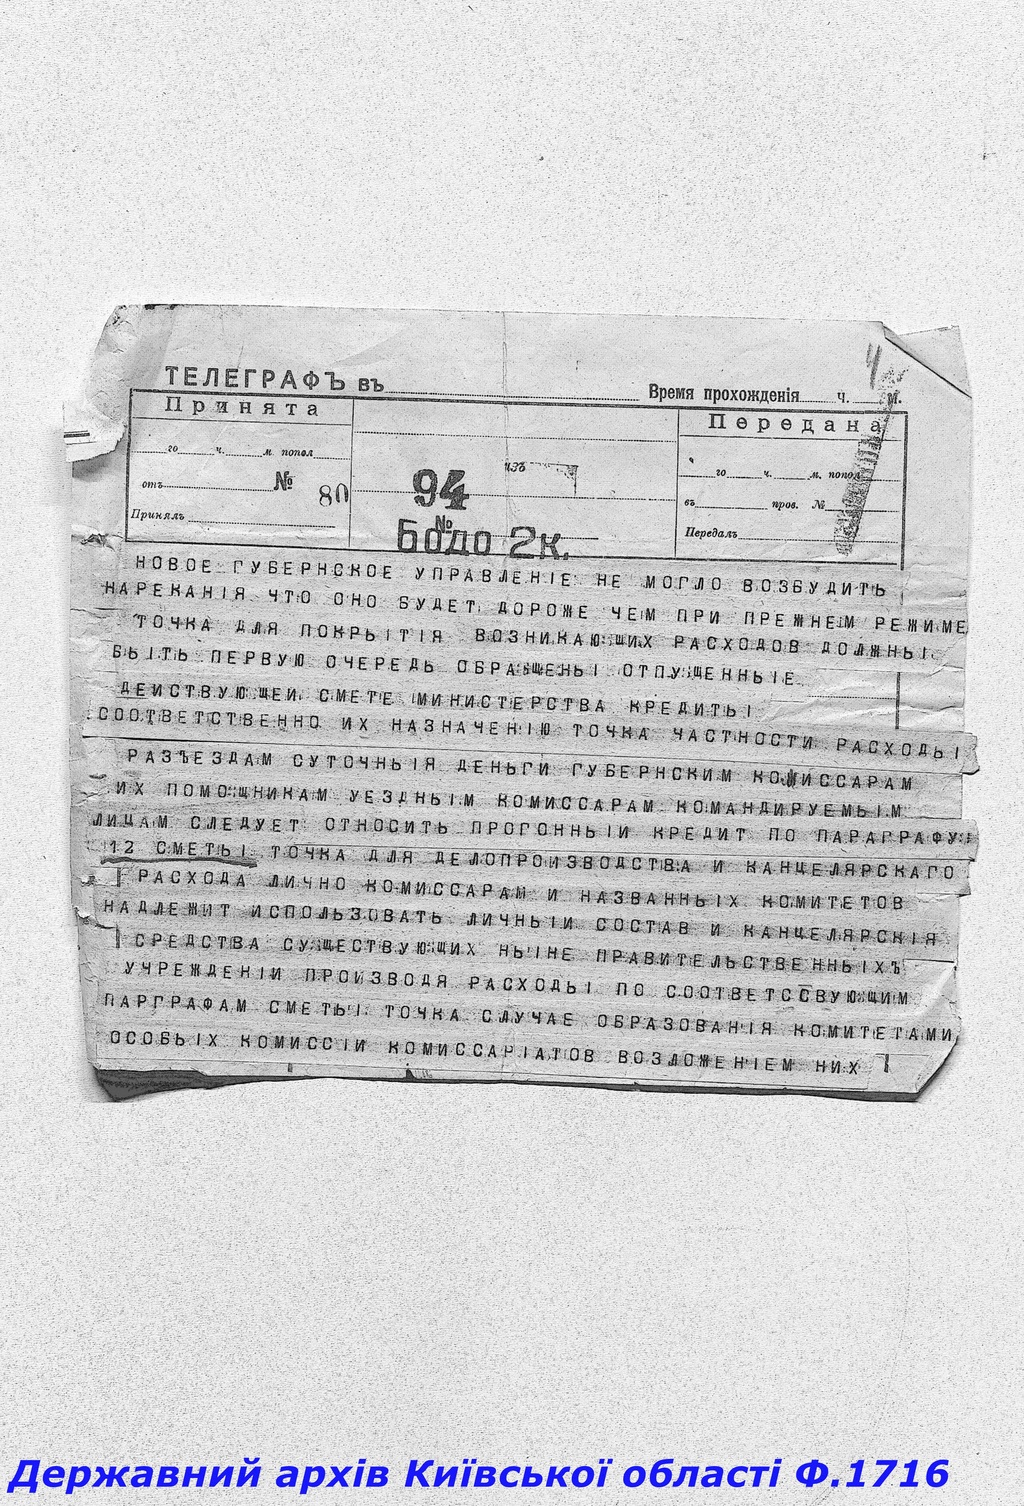 ТЕЛЕГРАФЪ въ
Время прохожденія ч. м.
Принята
Передана
го ч. м. попол
изъ
го ч. м. попол
отъ № 80
94
въ пров. №
Принялъ
№
Бодо 2к.
Передалъ
НОВОЕ ГУБЕРНСКОЕ УПРАВЛЕНІЕ НЕ МОГЛО ВОЗБУДИТЬ
НАРЕКАНІЯ ЧТО ОНО БУДЕТ ДОРОЖЕ ЧЕМ ПРИ ПРЕЖНЕМ РЕЖИМЕ
ТОЧКА ДЛЯ ПОКРЫТІЯ ВОЗНИКАЮЩИХ РАСХОДОВ ДОЛЖНЫ
БЫТЬ ПЕРВУЮ ОЧЕРЕДЬ ОБРАЩЕНЫ ОТПУЩЕННЫЕ
ДЕИСТВУЮЩЕИ СМЕТЕ МИНИСТЕРСТВА КРЕДИТЫ
СООТВЕТСТВЕННО ИХ НАЗНАЧЕНІЮ ТОЧКА ЧАСТНОСТИ РАСХОДЫ
РАЗЪЕЗДАМ СУТОЧНЫЯ ДЕНЬГИ ГУБЕРНСКИМ КОМИССАРАМ
ИХ ПОМОЩНИКАМ УЕЗДНЫМ КОМИССАРАМ КОМАНДИРУЕМЫМ
ЛИЦАМ СЛЕДУЕТ ОТНОСИТЬ ПРОГОННЫИ КРЕДИТ ПО ПАРАГРАФУ
12 СМЕТЫ ТОЧКА ДЛЯ ДЕЛОПРОИЗВОДСТВА И КАНЦЕЛЯРСКАГО
РАСХОДА ЛИЧНО КОМИССАРАМ И НАЗВАННЫХ КОМИТЕТОВ
НАДЛЕЖИТ ИСПОЛЬЗОВАТЬ ЛИЧНЫИ СОСТАВ И КАНЦЕЛЯРСКІЯ
СРЕДСТВА СУЩЕСТВУЮЩИХ НЫНЕ ПРАВИТЕЛЬСТВЕННЫХЪ
УЧРЕЖДЕНІИ ПРОИЗВОДЯ РАСХОДЫ ПО СООТВЕТССВУЮЩИМ
ПАРГРАФАМ СМЕТЫ ТОЧКА СЛУЧАЕ ОБРАЗОВАНІЯ КОМИТЕТАМИ
ОСОБЫХ КОМИССІИ КОМИССАРІАТОВ ВОЗЛОЖЕНІЕМ НИХ
Державний архів Київської області Ф.1716